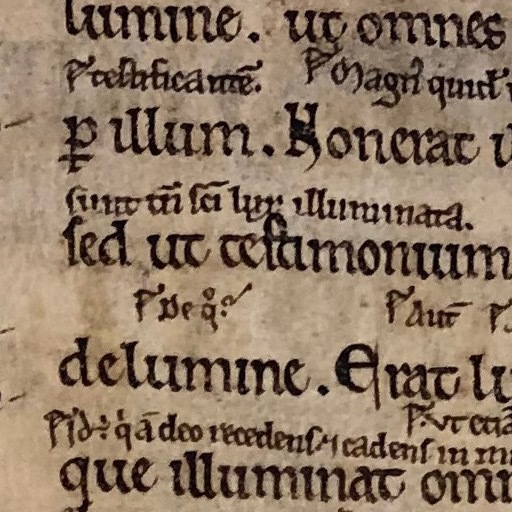 lumine. ut omnes
testificante͂. Magn᷒ quid᷒
ꝑ illum. Nonerat
sunt tn̄ sc̄i lux illuminata.
sed ut testimonium
De q̊
Aut̄
delumine. Erat lu
q̇ ā deo recedens cadens in
que illuminat omn